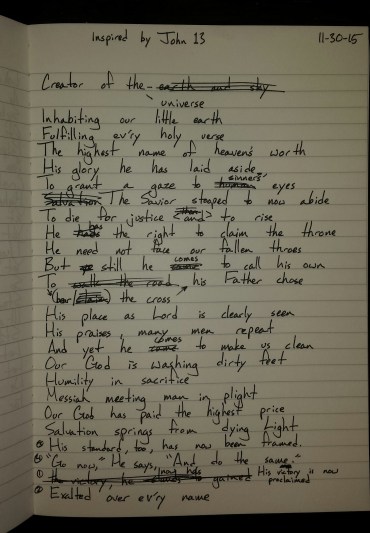 Inspired by John 13 11-30-15
Creator of the earth and sky
universe
Inhabiting our little earth
Fulfilling ev'ry holy verse
The highest name of heaven's worth
His glory he has laid aside
sinners'
To grant a gaze to human eyes
Salvation The Savior stooped to now abide
To die for justice (and) to rise
has
He the right to claim the throne
He need not face our fallen throes
comes
But still he came to call his own
To walk the road, his Father chose
(bear the cross
His place as Lord is clearly seen
His praises, many men repeat
comes
And yet he came to make us clean
Our God is washing dirty feet
Humility in sacrifice
Messiah meeting man in plight
Our God has paid the highest price
Salvation springs from dying Light
③ His standard, too, has now been framed.
④ "Go now," He says, "And do the same."
now has
① the victory, he gained His victory is now
proclaimed
② Exalted over ev'ry name